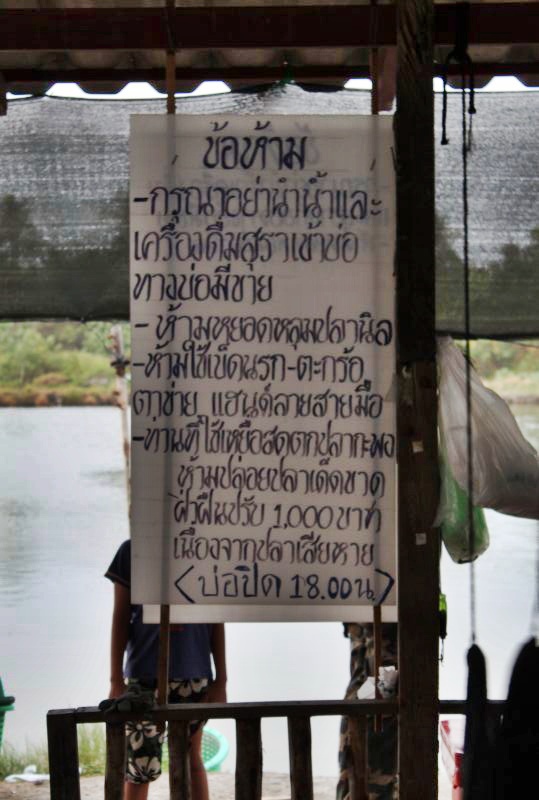 ข้อห้าม
-กรุณาอย่านำน้ำและ
เครื่องดื่มสุราเข้าบ่อ
ทางบ่อมีขาย
- ห้ามหยอดหลุมปลานิล
-ห้ามใช้เบ็ดนรก-ตะกร้อ
ตาข่าย แฮนด์ลายสายมือ
-ท่านที่ใช้เหยื่อสดตกปลากะพง
ห้ามปล่อยปลาเด็ดขาด
ฝ่าฝืนปรับ 1,000 บาท
เนื่องจากปลาเสียหาย
<บ่อปิด 18.00น.>